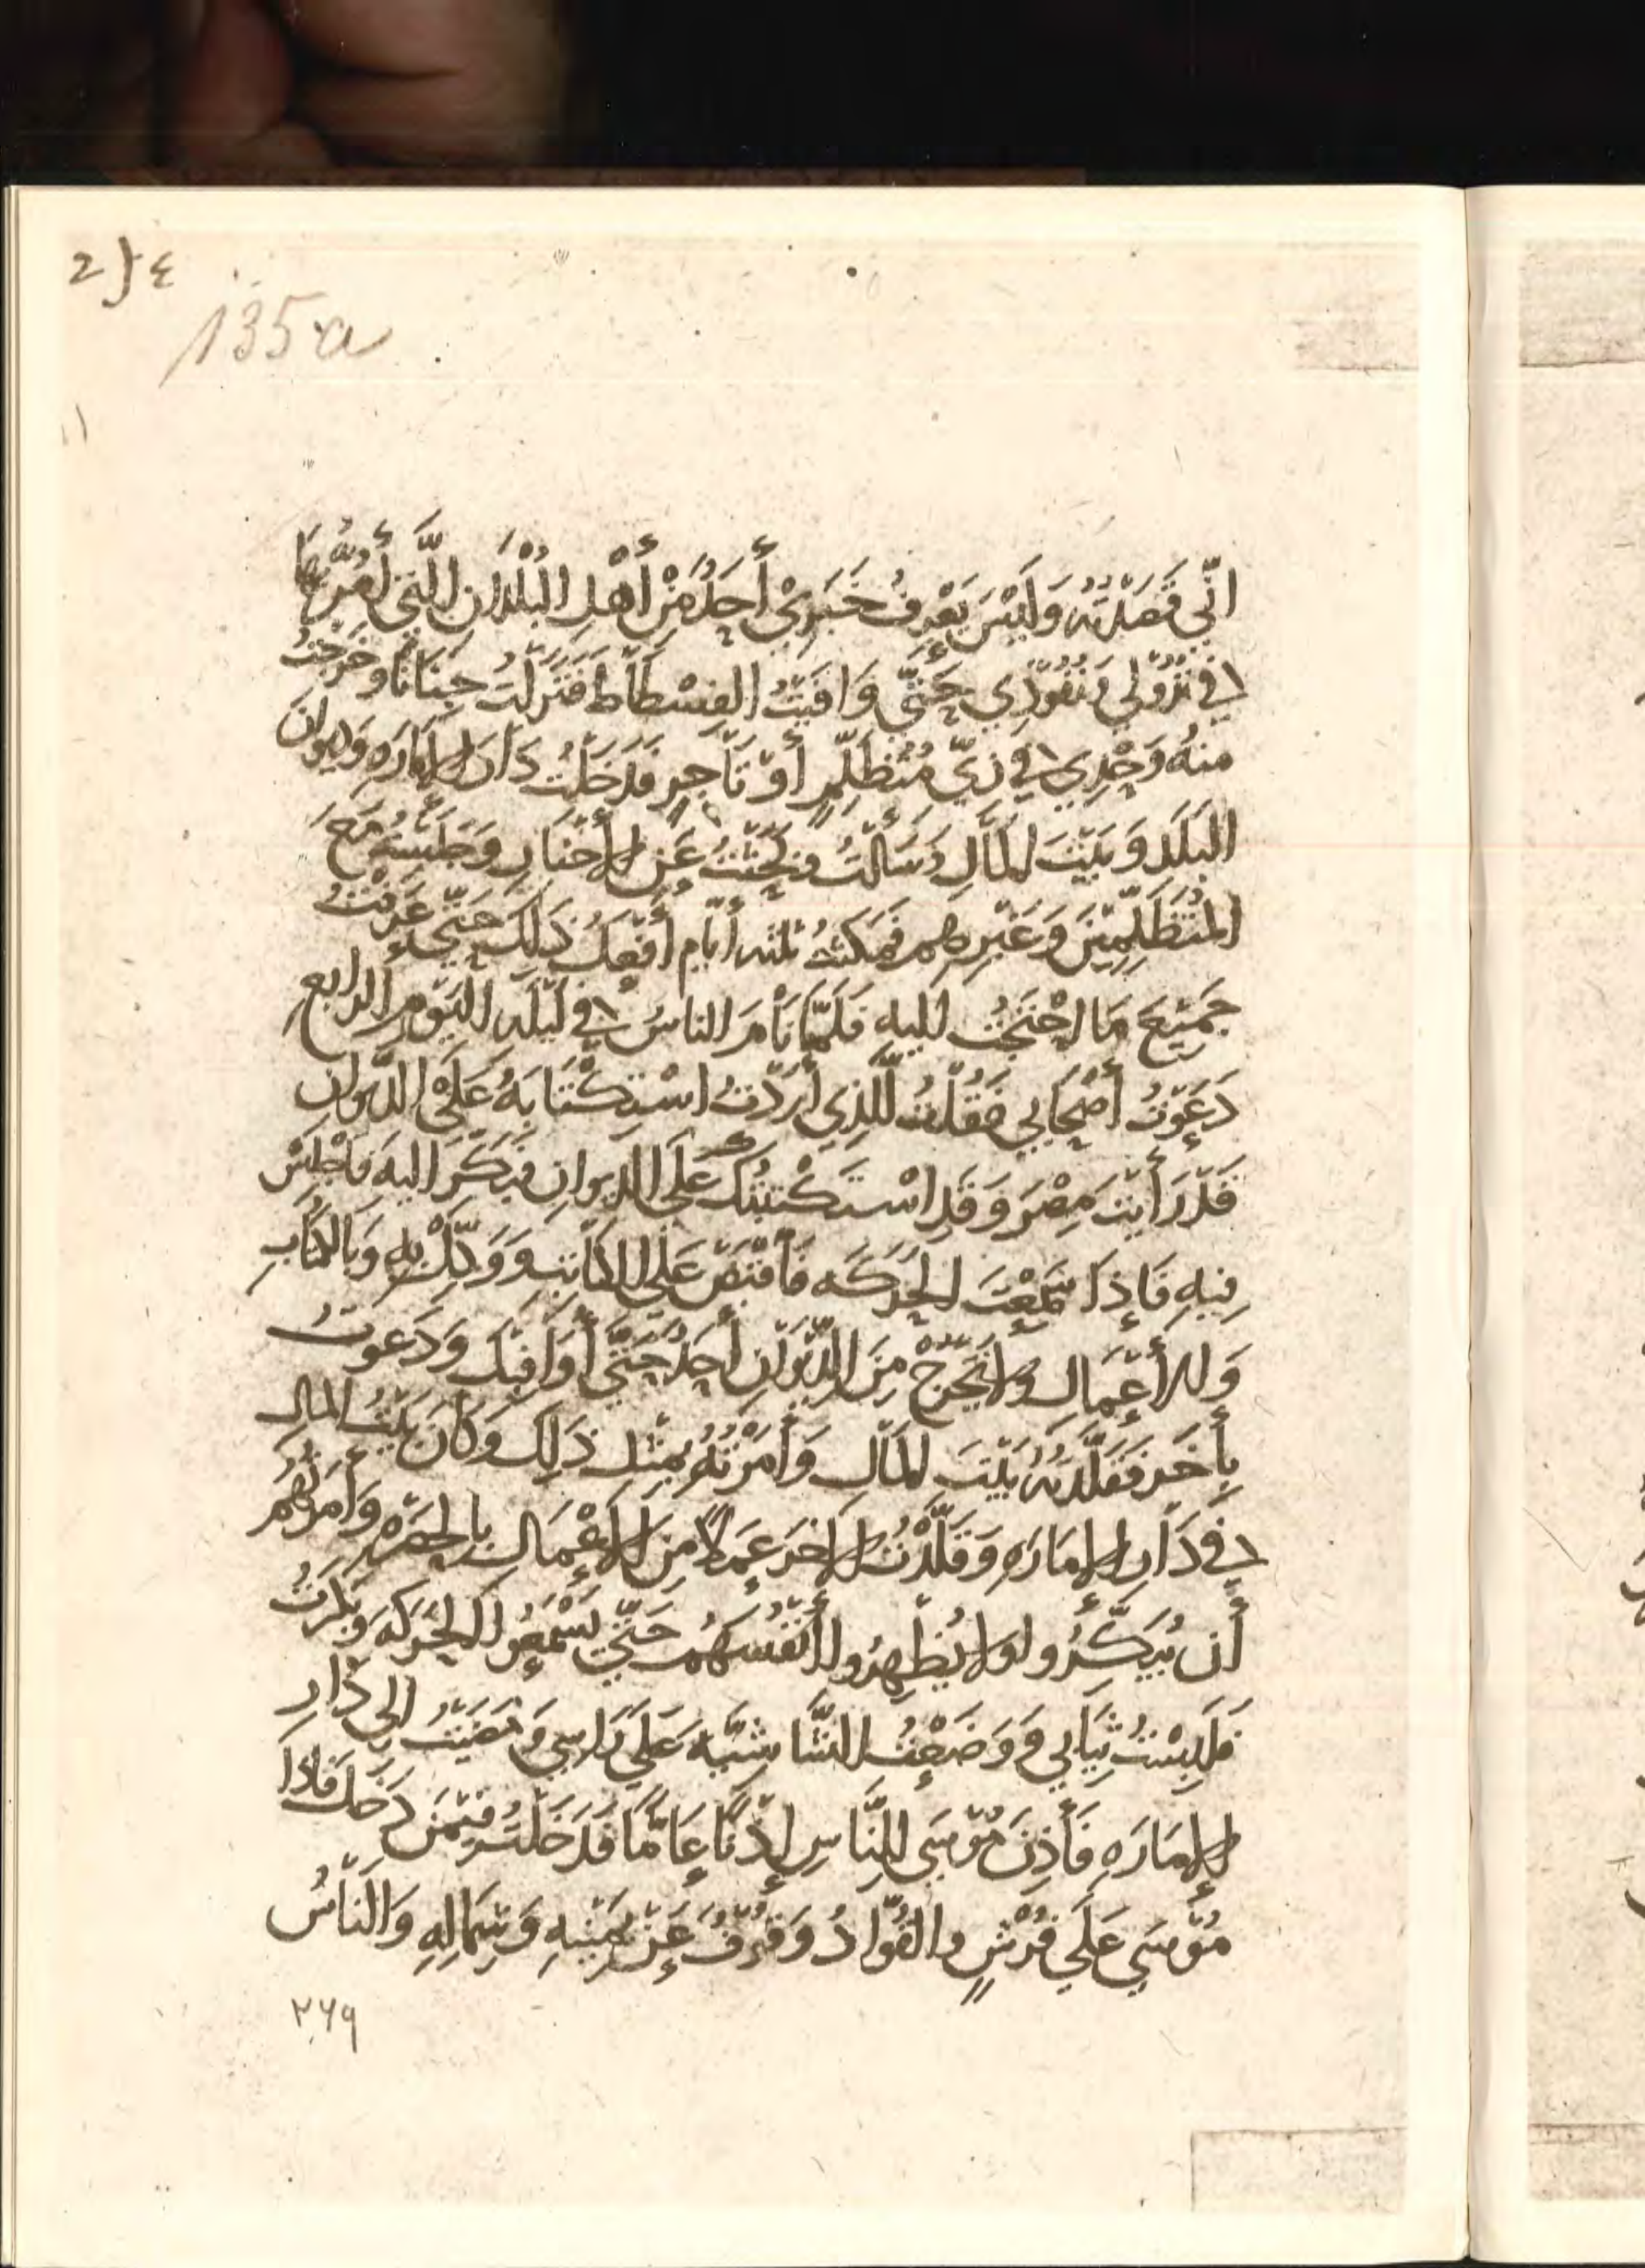 2}٤
135a
١١
انّي قَصَدْتُه وَلَيْسَ يَعْرِفُ خَبَرِيْ أَحَدٌ مِنْ أَهْلِ البُلْدَانِ الَّتِي أَمُرُّ بِهَا
في نُزُوْلي وَنُفُوْذِي حَتَّى وَافَيْتُ الفِسْطَاط فَنَزَلْتُ جِنَانًا وخَرَجْتُ
منهُ وَحْدِي في زِيّ مُتَظَلِّمٍ أَوْ تَاجِرٍ فَدَخَلْتُ دَارَ الإِمَارَهِ وَدِيوَانَ
البَلَدِ وَبَيْتَ المَالِ وَسَأَلْتُ وبَحَثْتُ عَنِ الأَخْبَارِ وَجَلَسْتُ مَعَ
المُتَظَلِّمِيْنَ وَغَيْرِهِم فَمَكَثْتُ ثلثه أَيَّام أَفْعَلُ ذَلِكَ حَتَّى عَرَفْتُ
جَمِيْعَ مَا احْتَجْتُ إليه فَلَمَّا نَامَ الناسُ في لَيْلَه اليَوْمِ الرابعِ
دَعَوْتُ أَصْحَابي فَقُلْتُ لِلَّذِي أَرَدْتُ اسْتِكْتَابَهُ عَلَى الدِّيوانِ
قَدْ رَأَيْتَ مِصْرَ وَقَدِ اسْتَكْتَبْتُكَ عَلَى الديوانِ فَبَكِّرَ اليهَ فَاجْلِسْ
فِيهِ فَإِذَا سَمِعْتَ الحَرَكَه فَاقْبَضْ عَلَى الكَاتِبِ وَوَكِّلْ بِهِ وَبَالكُتَّابِ
وَالأَعْمَالِ وَلا يَخْرُجْ مِنَ الدِّيْوَانِ أَحَدٌ حَتَّى أُوَافِيْكَ وَدَعَوتُ
بِأَخَر فَقَلَّدْتُهُ بَيْتَ المَالِ وَأَمَرْتُهُ بِمِثْلِ ذَلِكَ وَكَانَ بَيْتُ المَالِ
في دَارِ الإمَارَهِ وَقَلَّدْتُ الأخَرَ عَمَلاً مِنَ الأَعْمَالِ بِالحَضْرَهِ وَأَمَرْتُهُم
أَن يُبَكِّرُوا وَلا يُظْهِرُوا أَنْفُسَهُم حَتَّى يَسْمَعُوا الحَرَكَه وَبَكَرْتُ
فَلَبِسْتُ ثِيَابي وَوَضَعْتُ الشَّاشِيَّه عَلَى رَاسِي وَمَضَيْتُ إلى دَارِ
الإمَارَهِ فَأَذِنَ مُوْسَى للنَّاسِ إِذْنًا عَامًّا فَدَخَلْتُ فيْمَن دَخَلَ فَاذَا
مُوْسَى عَلَى فُرْشٍ والقُوَّادُ وَقُوْفٌ عَنْ يَمِيْنِهِ وَشِمَالِهِ وَالنَّاسُ
٢٦٩